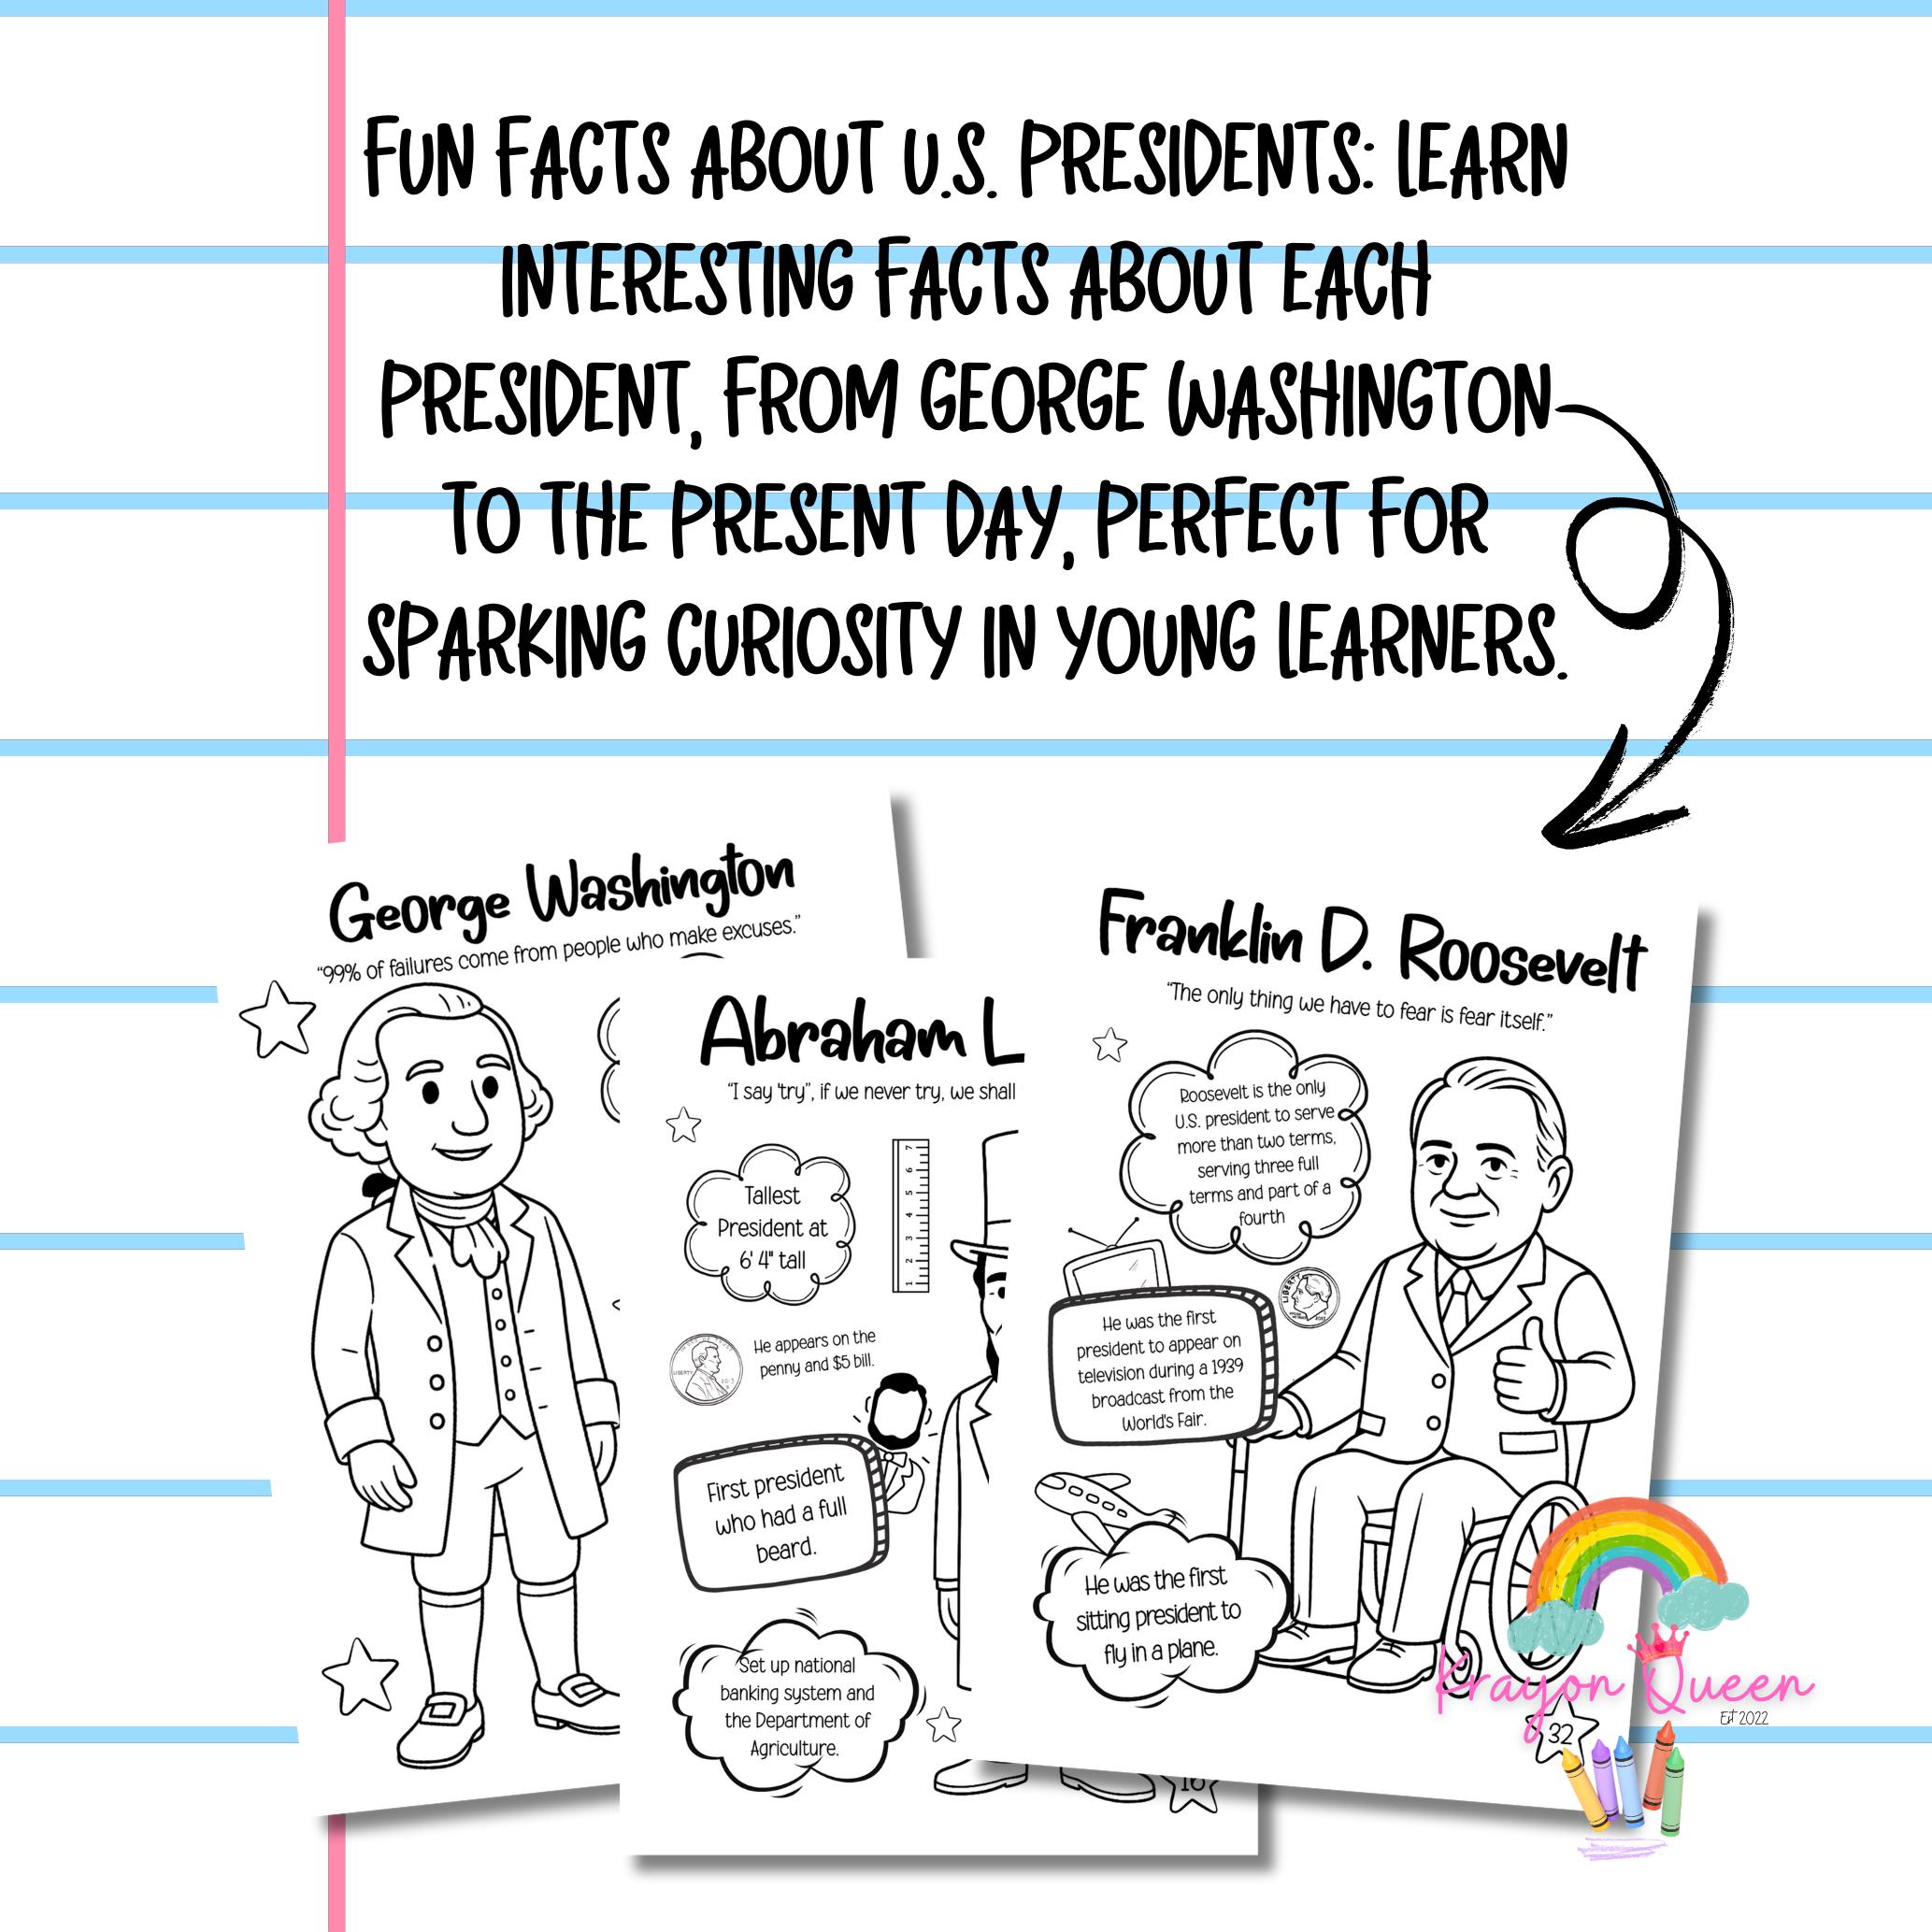 FUN FACTS ABOUT U.S. PRESIDENTS: LEARN
INTERESTING FACTS ABOUT EACH
PRESIDENT, FROM GEORGE WASHINGTON
TO THE PRESENT DAY, PERFECT FOR
SPARKING CURIOSITY IN YOUNG LEARNERS.
George Washington
“99% of failures come from people who make excuses.”
Abraham L
“I say 'try”, if we never try, we shall
Tallest
President at
6' 4" tall
1 2 3 4 5 6 7
He appears on the
penny and $5 bill.
LIBERTY
First president
who had a full
beard.
Set up national
banking system and
the Department of
Agriculture.
16
Franklin D. Roosevelt
“The only thing we have to fear is fear itself.”
Roosevelt is the only
U.S. president to serve
more than two terms,
serving three full
terms and part of a
fourth
LIBERTY
He was the first
president to appear on
television during a 1939
broadcast from the
World's Fair.
He was the first
sitting president to
fly in a plane.
32
Krayon Queen
Est 2022